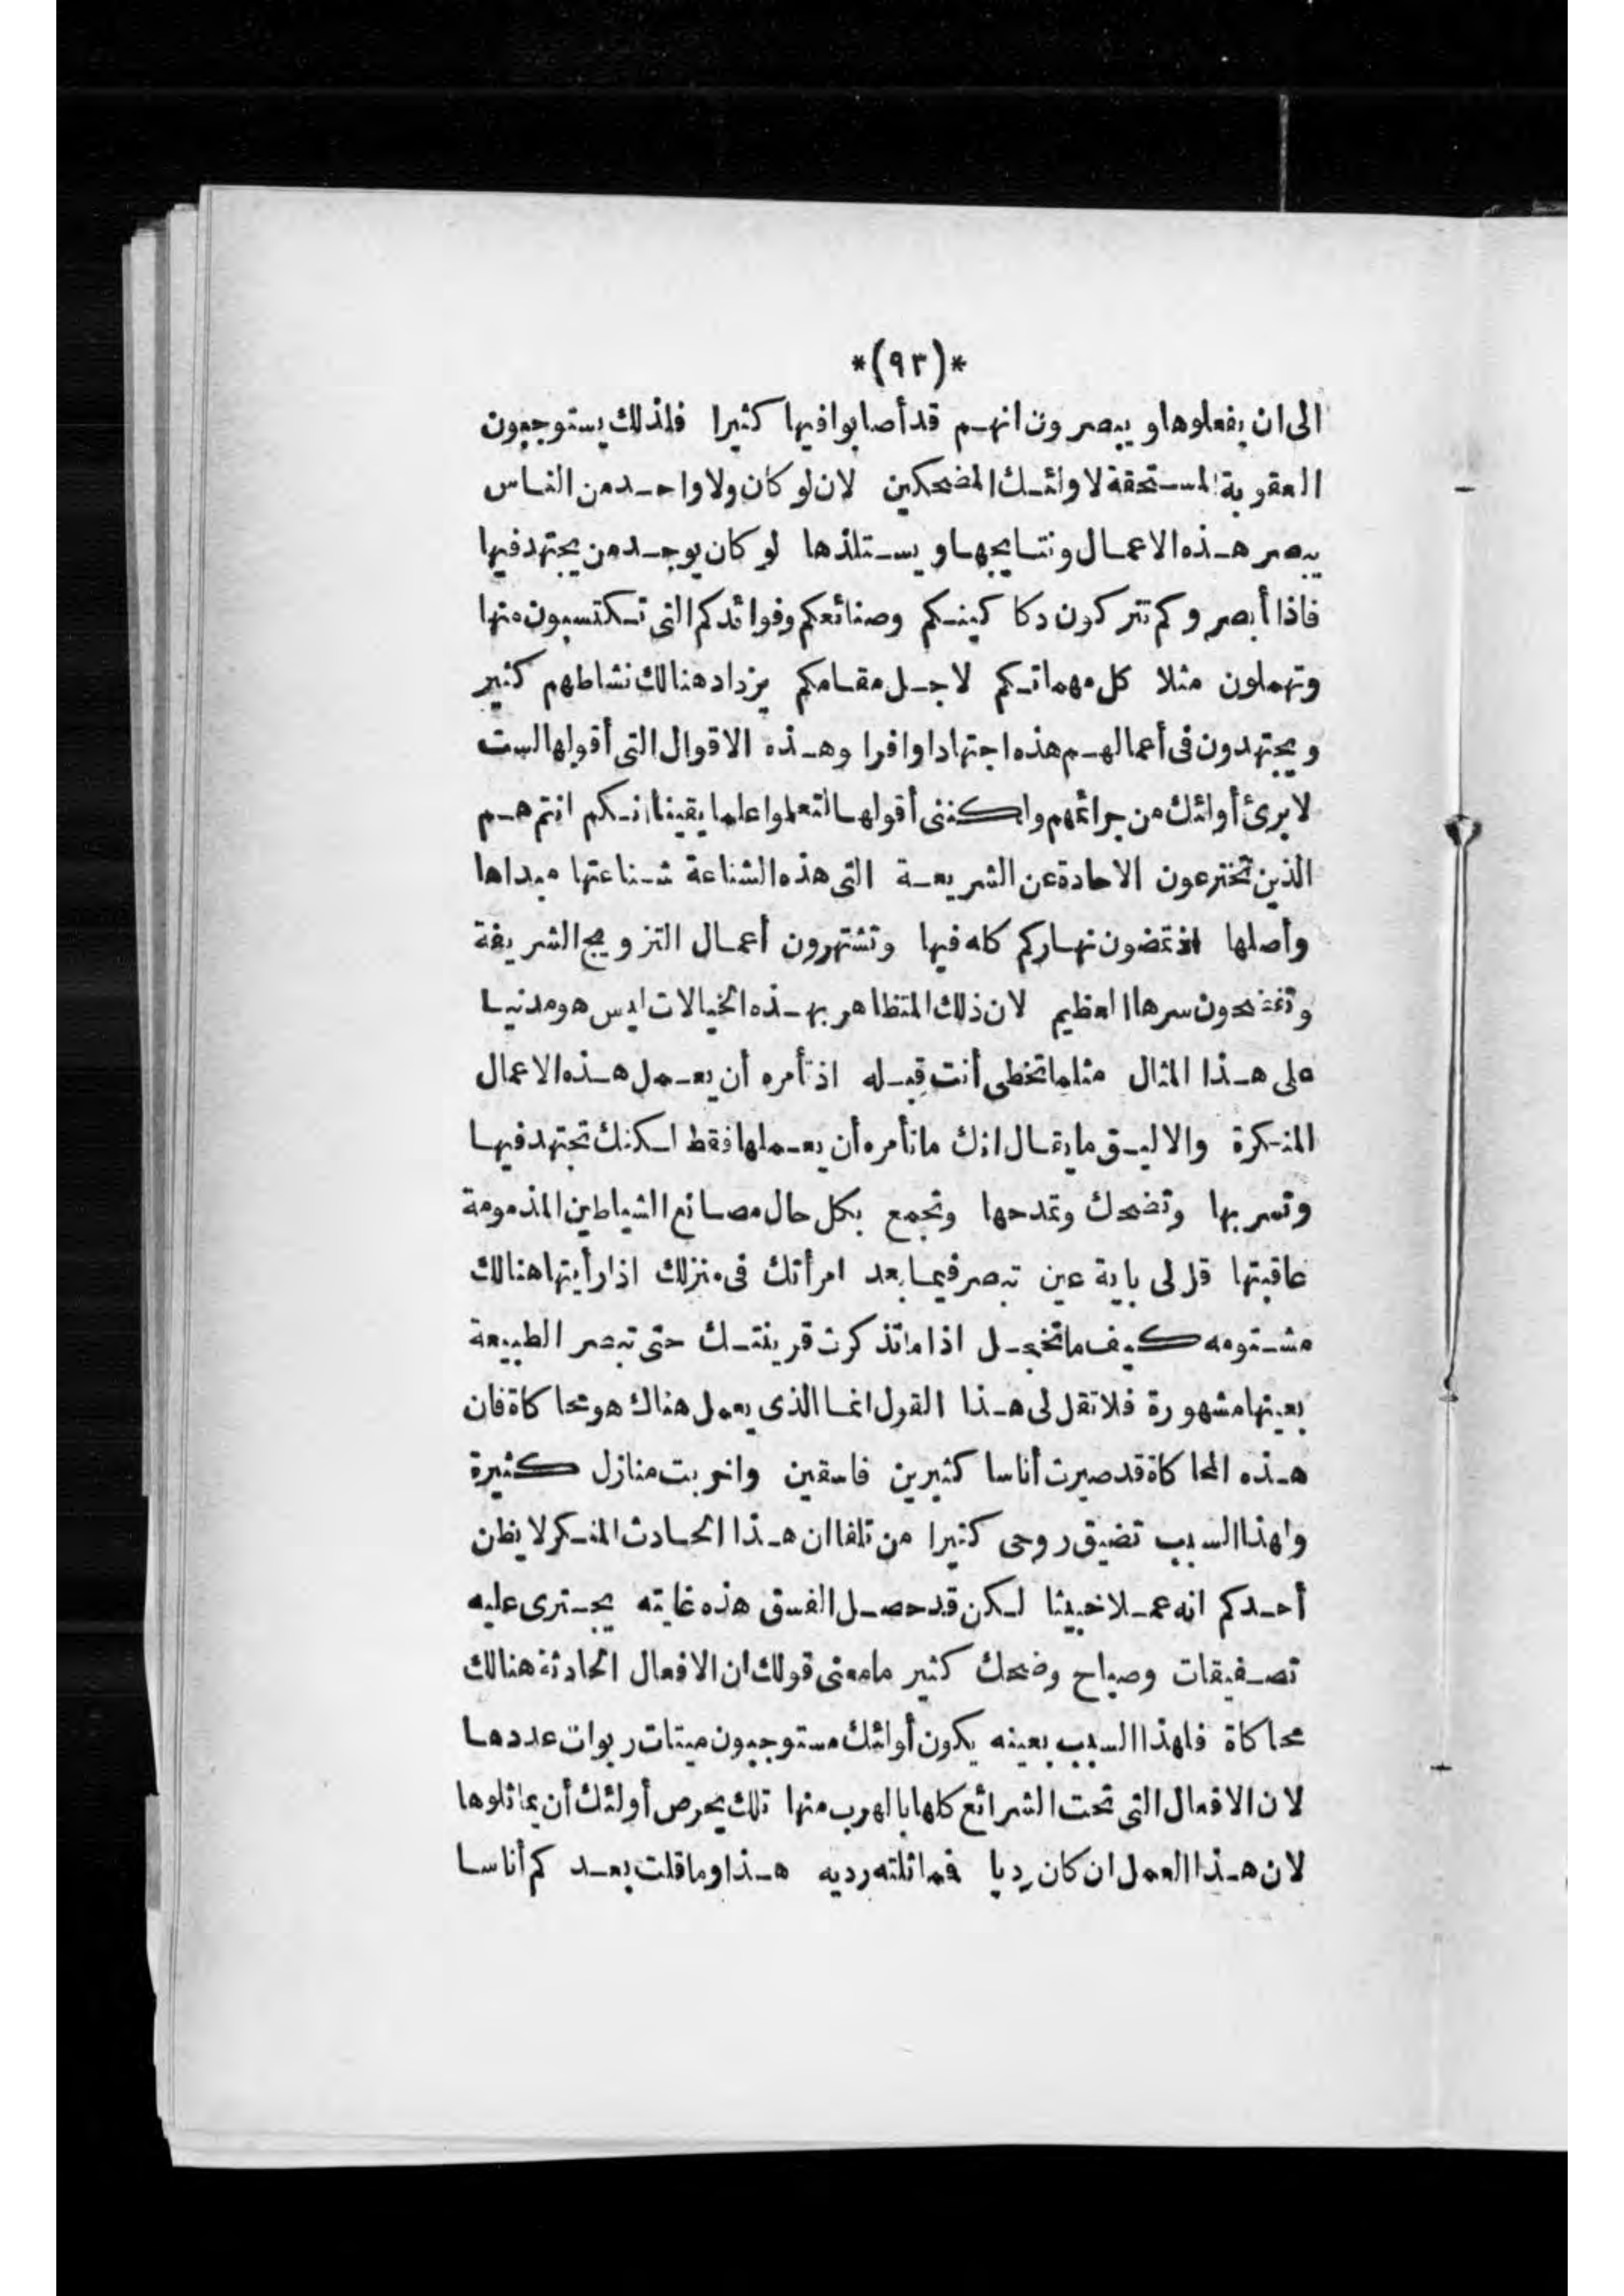 *(٩٣)*
الى ان يفعلوها ويبصرون انهم قد أصابوا فيها كثيرا فلذلك يستوجبون
العقوبة المستحقة لاولئك المضحكين لان لو كان ولا واحد من الناس
يبصر هذه الاعمال ونتايجها ويستلذها لو كان يوجد من يجتهد فيها
فاذا أبصروكم تتركون دكاكينكم وصنائعكم وفوائدكم التى تكتسبون منها
وتهملون مثلا كل مهماتكم لاجل مقامكم يزداد هنالك نشاطهم كثير
ويجتهدون فى أعمالهم هذه اجتهادا وافرا وهذه الاقوال التى أقولها لست
لابرئ أولئك من جرائمهم ولكننى أقولها لتعلموا علما يقينا انكم انتم هم
الذين تخترعون الاحادة عن الشريعة التى هذه الشناعة شناعتها مبداها
وأصلها اذ تمضون نهاركم كله فيها وتشتهرون أعمال التزويج الشريفة
وتفضحون سرها العظيم لان ذلك المتظاهر بهذه الخيالات ليس هو مدنيا
على هذا المثال مثلما تخطى أنت قبله اذ تأمره أن يعمل هذه الاعمال
المنكرة والاليق ما يقال انك ما تأمره أن يعملها فقط لكنك تجتهد فيها
وتسر بها وتضحك وتمدحها وتجمع بكل حال مصانع الشياطين المذمومة
عاقبتها قل لى باية عين تبصر فيما بعد امرأتك فى منزلك اذا رأيتها هنالك
مشتومه كيف ما تخجل اذا ما تذكرت قرينتك حتى تبصر الطبيعة
بعينها مشهورة فلا تقل لى هذا القول انما الذى يعمل هناك هو محاكاة فان
هذه المحاكاة قد صيرت أناسا كثيرين فاسقين واخربت منازل كثيرة
ولهذا السبب تضيق روحى كثيرا من تلقا ان هذا الحادث المنكر لا يظن
أحدكم انه عملا خبيثا لكن قد حصل الفسق هذه غايته يجترى عليه
تصفيقات وصياح وضحك كثير ما معنى قولك ان الافعال الحادثة هنالك
محاكاة فلهذا السبب بعينه يكون أولئك مستوجبون ميتات ربوات عددها
لان الافعال التى تحت الشرائع كلها بالهرب منها تلك يحرص أولئك أن يماثلوها
لان هذا العمل ان كان رديا فمماثلته رديه هذا وما قلت بعد كم أناسا